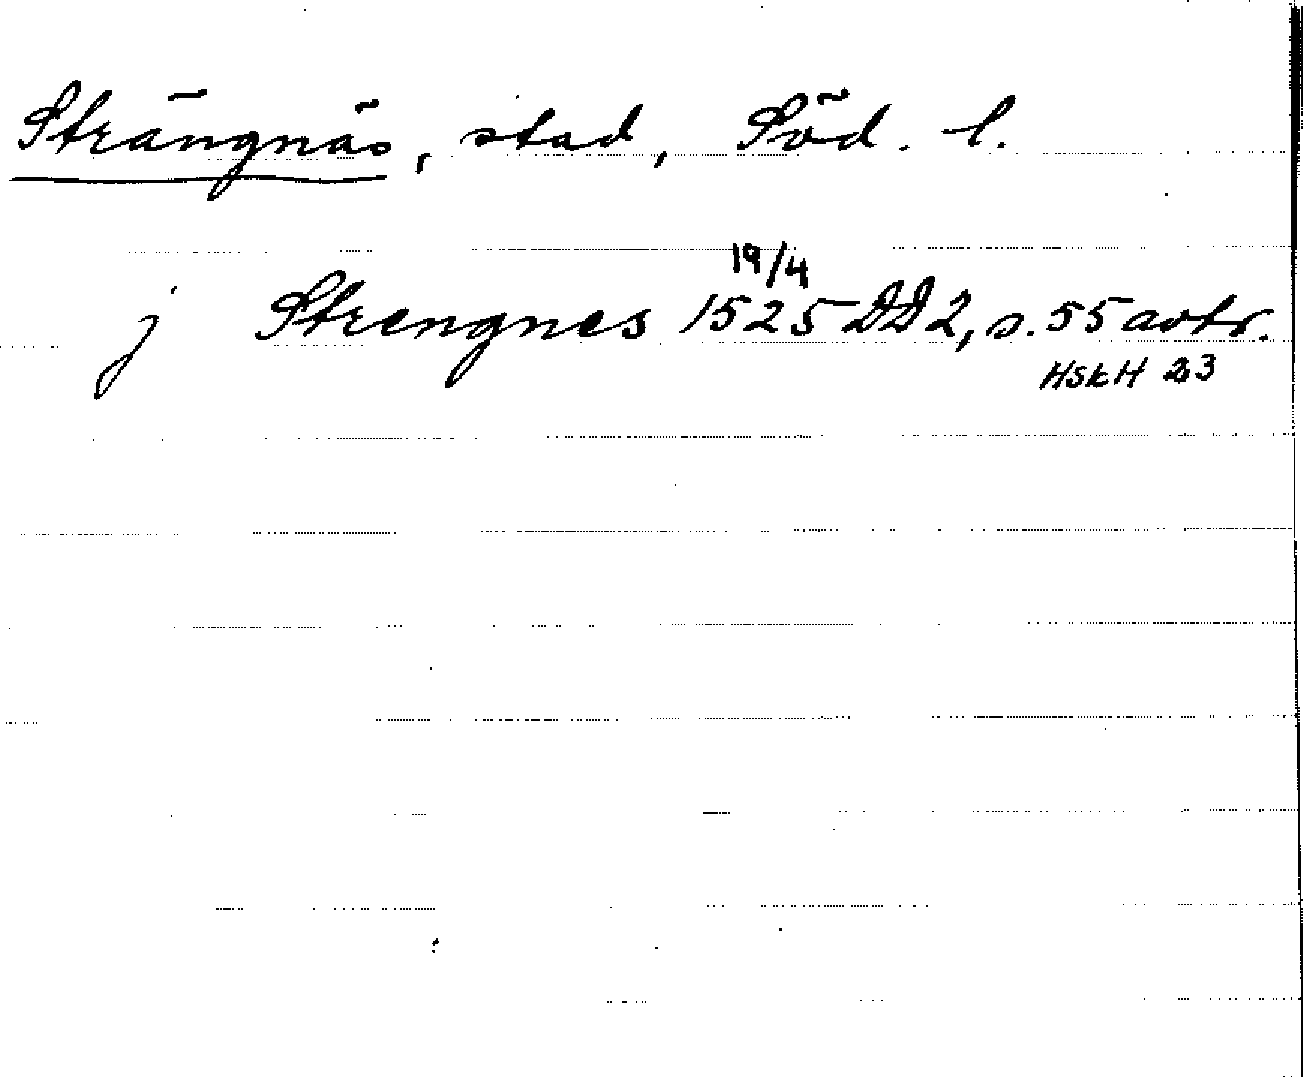 Strängnäs, stad, Söd. l.
j Strengnes 19/4 1525 DD2, s. 55 avtr.
HSkH 23